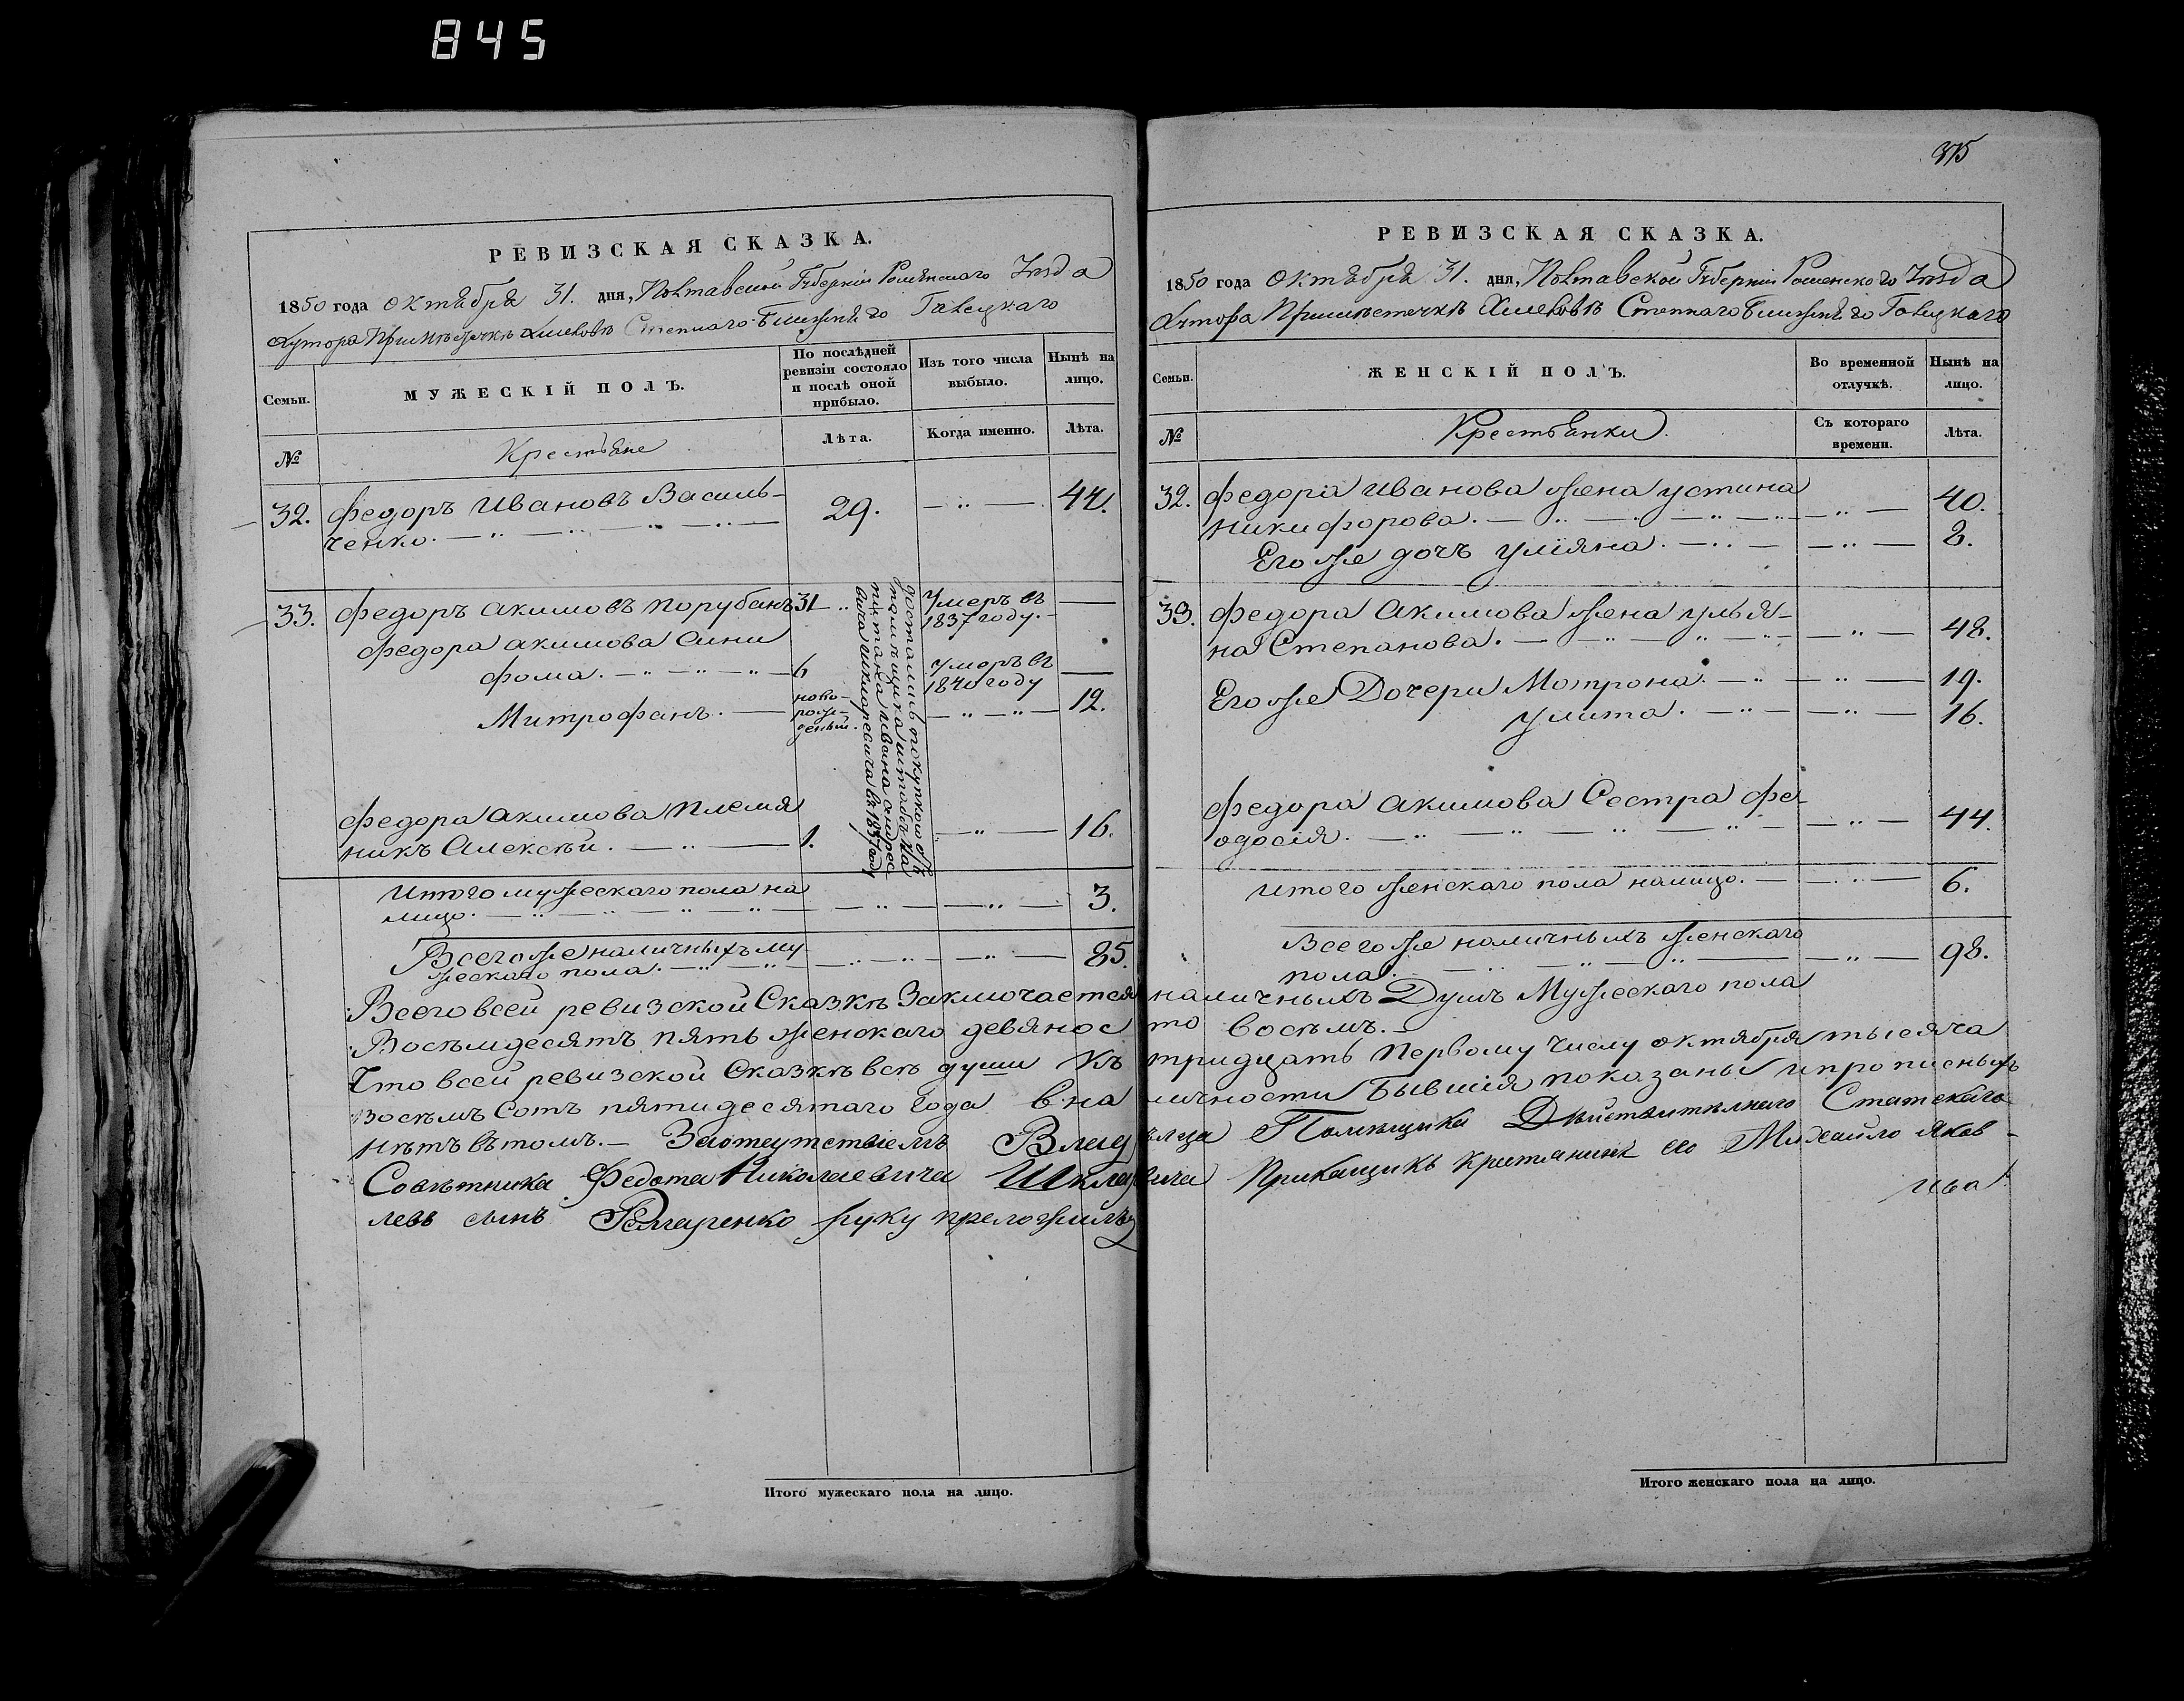 845
375
РЕВИЗСКАЯ СКАЗКА.
1850 года октября 31. дня, Полтавской Губерніи Роменскаго Уезда
Хутора При Местечке Хмеловъ Степнаго Ближнѣго Галецкаго
Семьи.
МУЖЕСКІЙ ПОЛЪ.
По послѣдней ревизіи состояло и послѣ оной прибыло.
Изъ того числа выбыло.
Нынѣ на лицо.
№
Крестьяне
Лѣта.
Когда именно.
Лѣта.
32. Федоръ Ивановъ Василь- 29. — „ — 44.
ченко. — „ — „ — „ — „ —
33. Федоръ Акимовъ Порубанъ 31 „ Умеръ въ —
1837 году. —
Федора Акимова Сини
Фома. — „ — „ — „ — 6 Умеръ въ —
1840 году
Митрофанъ. — ново- — „ — „ — 12.
рож-
деный.
Достались покупкою отъ
помещика
Ивана Андрее-
вича въ 1837 году
Федора Акимова Племя
никъ Алексѣй. — „ — 1. — „ — 16.
Итого мужескаго пола на
лицо. — „ — „ — „ — „ — „ — „ — 3.
Всего же наличныхъ му
жескаго пола. — „ — „ — „ — „ — „ — 85.
РЕВИЗСКАЯ СКАЗКА.
1850 года октября 31. дня, Полтавской Губерніи Роменскаго Уезда
Хутора При Местечкѣ Хмеловъ Степнаго Ближнѣго Галецкаго
Семьи.
ЖЕНСКІЙ ПОЛЪ.
Во временной отлучкѣ.
Нынѣ на лицо.
№
Крестьянки.
Съ котораго времени.
Лѣта.
32. Федора Иванова жена Устина
Никифорова. — „ — „ — „ — „ — „ — 40.
Его же дочъ Уліяна. — „ — — „ — 8.
33. Федора Акимова жена Улья-
на Степанова. — „ — „ — „ — — „ — 48.
Его же Дочери Мотрона. — „ — „ — 19.
Улита. — „ — — „ — 16.
Федора Акимова Сестра Фе-
одосія. — „ — „ — „ — „ — — „ — 44.
Итого женскаго пола налицо. — — „ — 6.
Всего же наличныхъ женскаго
пола. — „ — „ — „ — — „ — 98.
Всего всей ревизской Сказкѣ Заключается наличныхъ Душъ Мужескаго пола
Восѣмдесятъ пять женскаго девяносто восѣмъ. —
Что всей ревизской Сказкѣ всѣ души къ тридцать первому числу октября тысяча
Восѣмъ Сотъ пятидесятаго года в на личности бывшія показаны и прописныхъ
нѣтъ вътомъ. — За отсутствіемъ Владѣлца Помѣщика Дѣйствителнаго Статскаго
Совѣтника Федота Николаевича Прикащикъ крестянинъ его Михайло Яков-
левъ сынъ руку преложилъ
Итого мужескаго пола на лицо.
Итого женскаго пола на лицо.